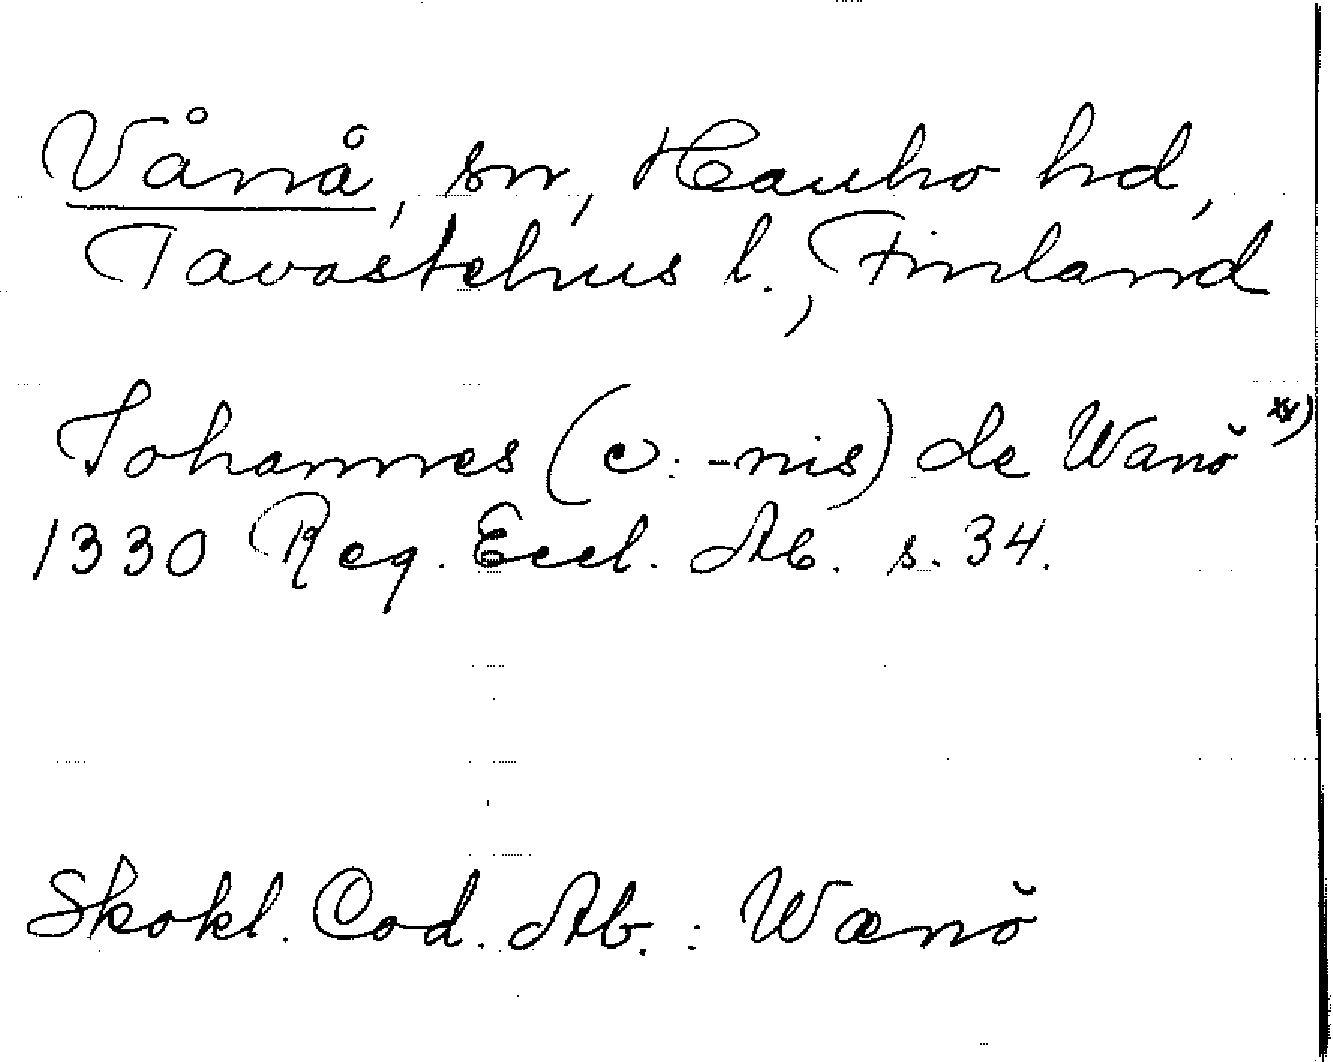 Vånå, sn, Hauho hd,
Tavastehus l., Finland
Johannes (c: -nis) de Wanŏ x)
1330 Reg. Eccl. Ab. s. 34.
Skokl. Cod. Ab. : Wænŏ